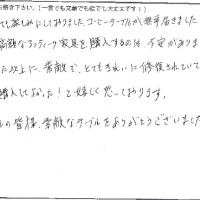 お書き下さい。(一言でも文章でも絵でも大丈夫です!)
ても楽しみにしておりましたコーヒーテーブルが無事届きました
高級なアンティーク家具を購入するのは、不安がありま
た以上に、素敵で、とてもきれいに修復されていて
購入してよかった!と嬉しく思っております。
ルの皆様、素敵なテーブルをありがとうございました